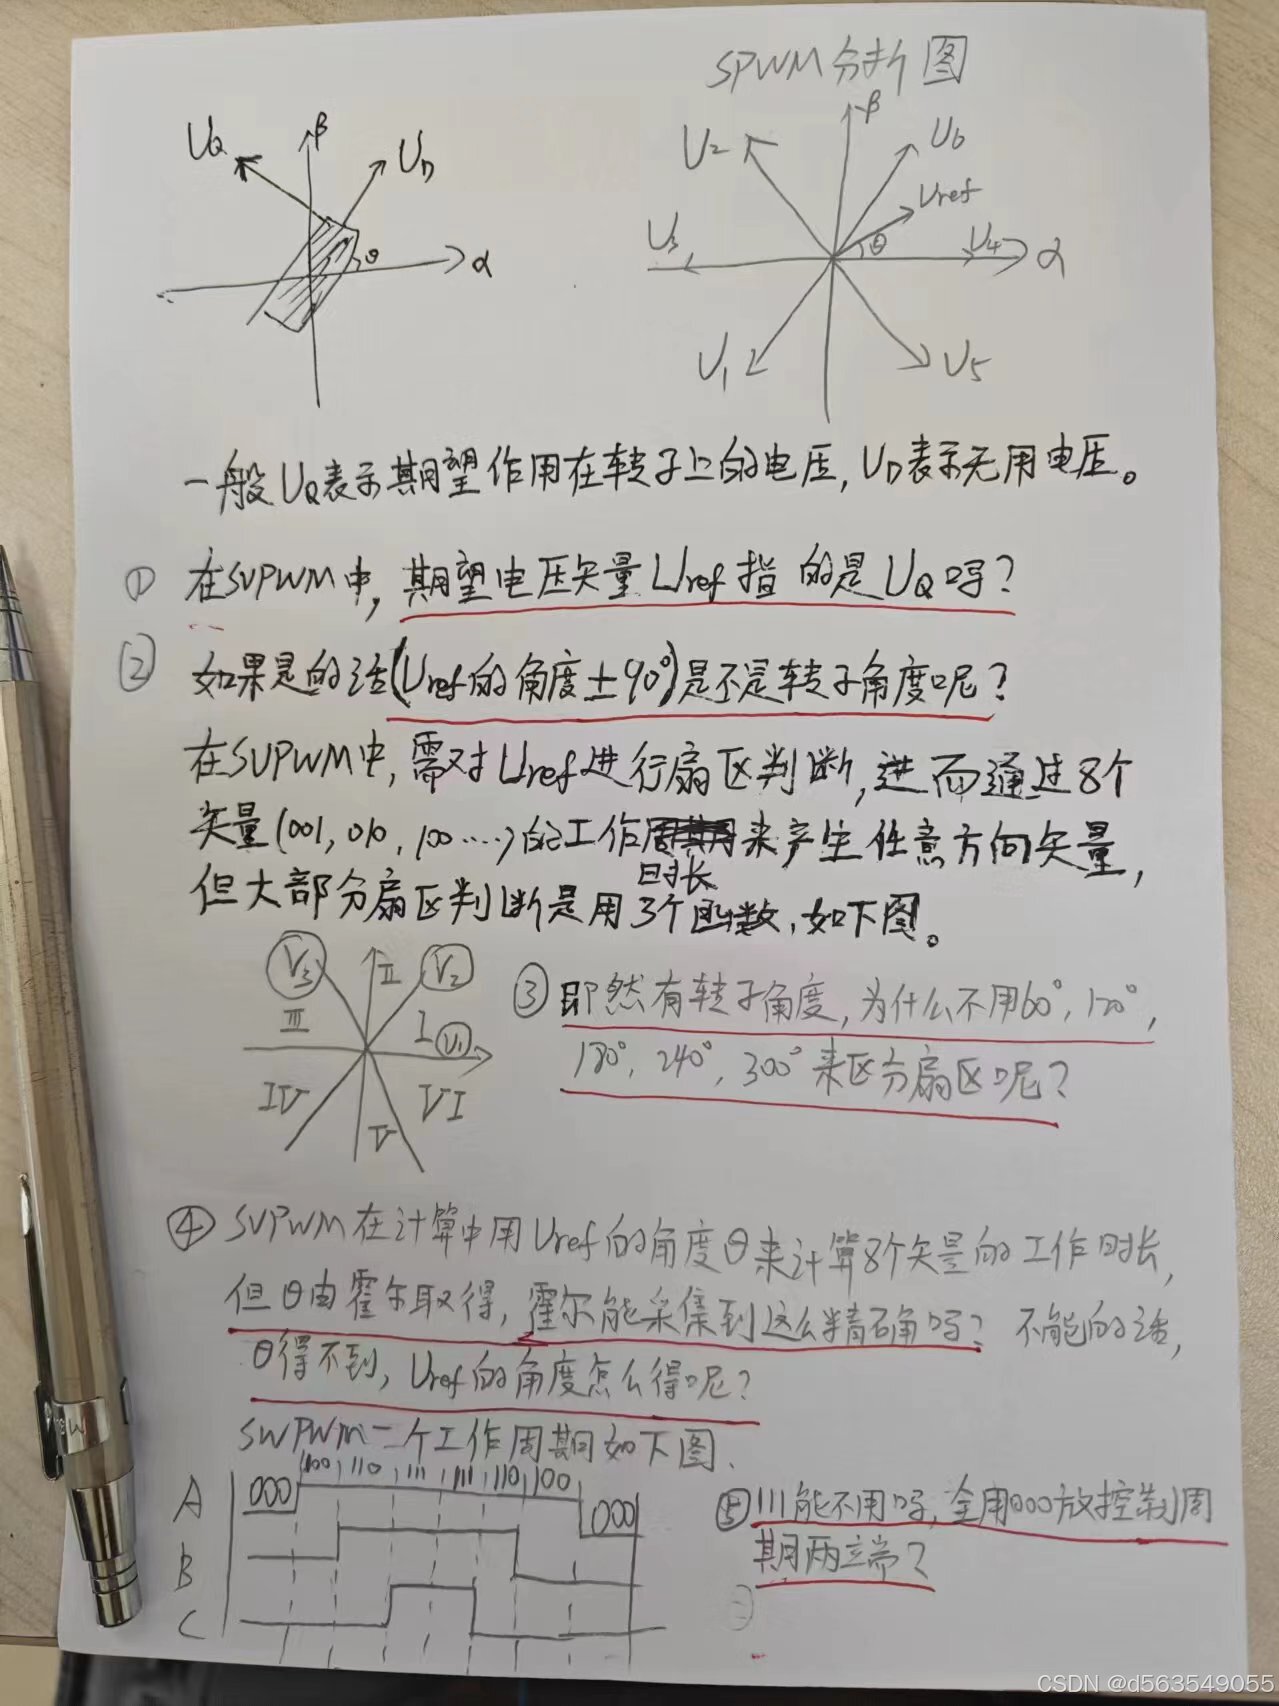 SPWM分析图
UQ β UD
θ α
β
U2 U6
Uref
U3 θ U4 α
U1 U5
一般UQ表示期望作用在转子上的电压,UD表示无用电压。
① 在SVPWM中,期望电压矢量Uref指的是UQ吗?
② 如果是的话(Uref的角度±90°)是不是转子角度呢?
在SVPWM中,需对Uref进行扇区判断,进而通过8个
矢量(001,010,100……)的工作时长来产生任意方向矢量,
但大部分扇区判断是用3个函数,如下图。
V3 II V2
III I V1
IV V VI
③即然有转子角度,为什么不用60°,120°,
180°,240°,300°来区分扇区呢?
④ SVPWM在计算中用Uref的角度θ来计算8个矢量的工作时长,
但θ由霍尔取得,霍尔能采集到这么精确吗?不能的话,
θ得不到,Uref的角度怎么得呢?
SWPWM一个工作周期如下图.
A 000 100 110 111 111 110 100 000
B
C
⑤111能不用吗,全用000放控制周
期两端?
MB
CSDN @d563549055